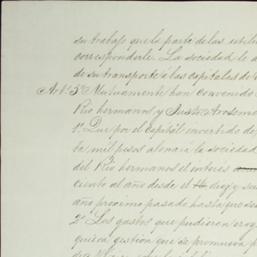 su trabajo que la parte de las utili
corresponderle. La sociedad le a
de su transporte á las capitales de
Art. 3º Mutuamente han convenido
Rio hermanos y Justo Aroseme
1º. Que por el capital invertido de
ta mil pesos abona á la sociedad
del Rio hermanos el interés
ciento al año desde el diez y
año proximo pasado hasta que
2º Los gastos que pudieren erog
quiera gestion que se promueva p